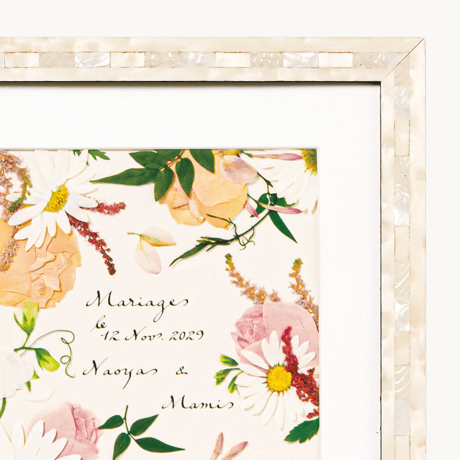 Mariages
le
12 Nov. 2029
Naoyas &
Mamis